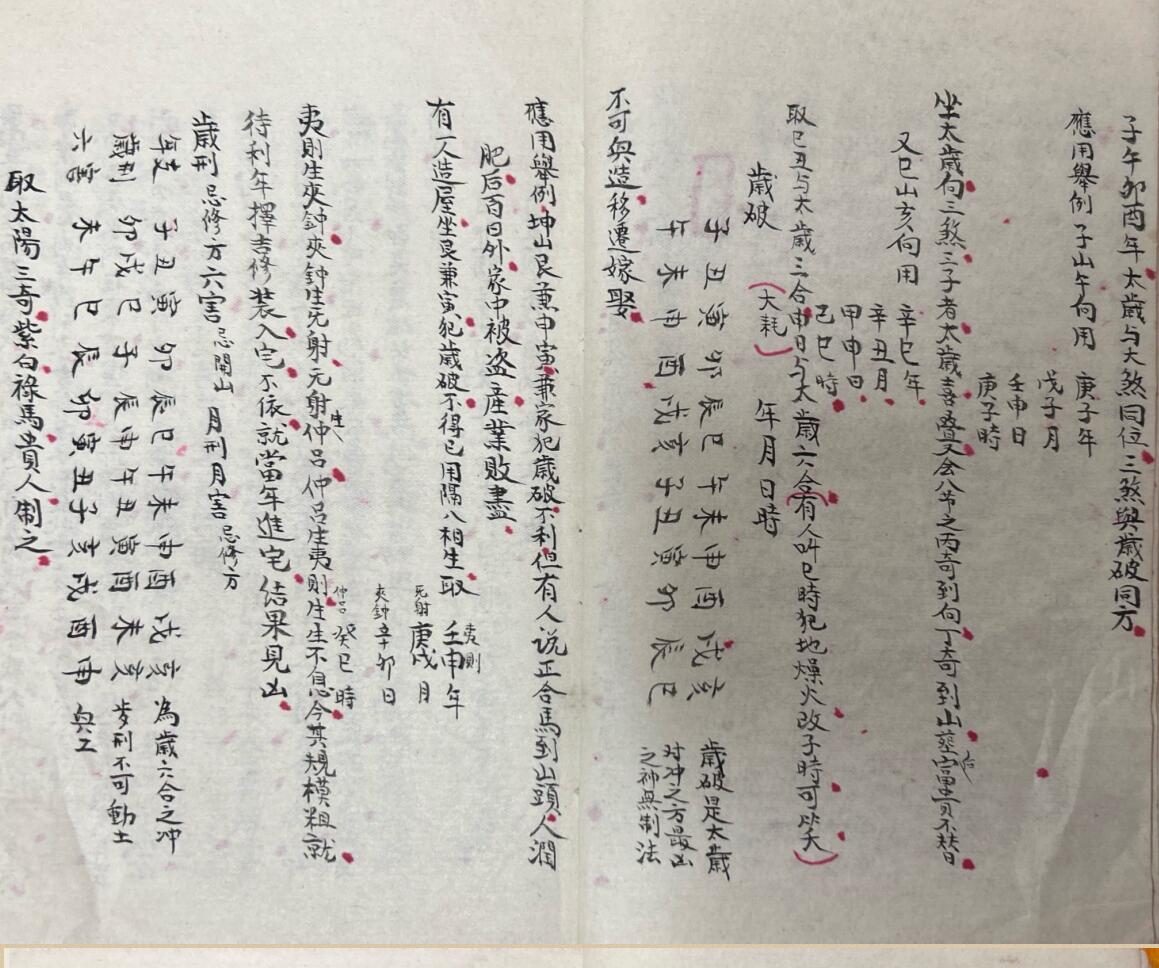 子午卯酉年太歲与大煞同位三煞與歲破同方
應用舉例子山午向用
庚子年
戊子月
壬申日
庚子時
坐太歲向三煞三子者太歲喜疊又会八节之丙奇到向丁奇到山塟后富貴不替
又巳山亥向用
辛巳年
辛丑月
甲申日
己巳時
取巳丑与太歲三合申日与太歲六合(有人叫巳時犯地燥火改子時可以夫)
歲破
(大耗)
年月日時
子丑寅卯辰巳午未申酉戌亥
午未申酉戌亥子丑寅卯辰巳
歲破是太歲
对冲之方最凶
之神無制法
不可興造移遷嫁娶
應用舉例坤山艮兼申寅兼家犯歲破不利但有人说正合馬到山頭人潤
肥后百日外家中被盗産業敗盡
有一人造屋坐艮兼寅犯歲破不得已用隔八相生取
夷則
壬申年
无射
庚戌月
夾鈡
辛卯日
仲吕
癸巳時
夷則生夾鈡夾鈡生无射无射生仲吕仲吕生夷則生生不息今其規模粗就
待利年擇吉修装入宅不依就當年進宅结果見凶
歲刑忌修方六害忌開山月刑月害忌修方
年支子丑寅卯辰巳午未申酉戌亥為歲六合之冲
歲刑卯戌巳子辰申午丑寅酉未亥歲刑不可動土
六害未午巳辰卯寅丑子亥戌酉申興工
取太陽三奇紫白祿馬貴人制之